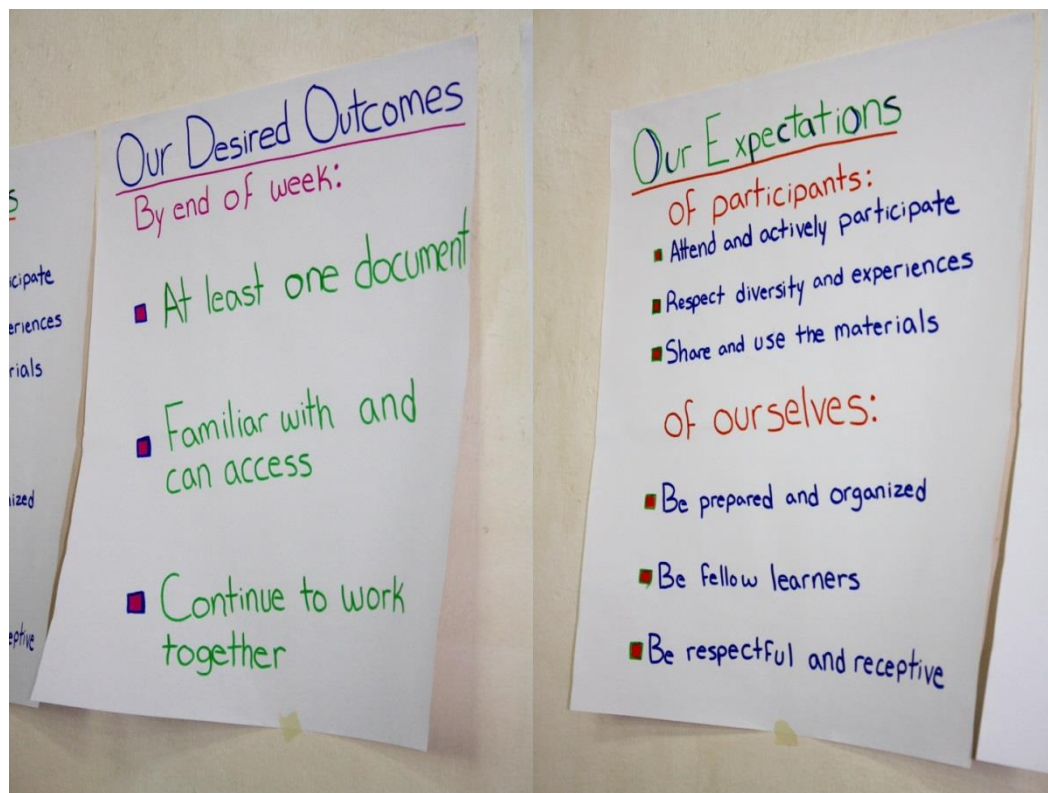 s
icipate
eriences
rials
ized
eptive
Our Desired Outcomes
By end of week:
At least one document
Familiar with and
can access
Continue to work
together
Our Expectations
of participants:
Attend and actively participate
Respect diversity and experiences
Share and use the materials
of ourselves:
Be prepared and organized
Be fellow learners
Be respectful and receptive